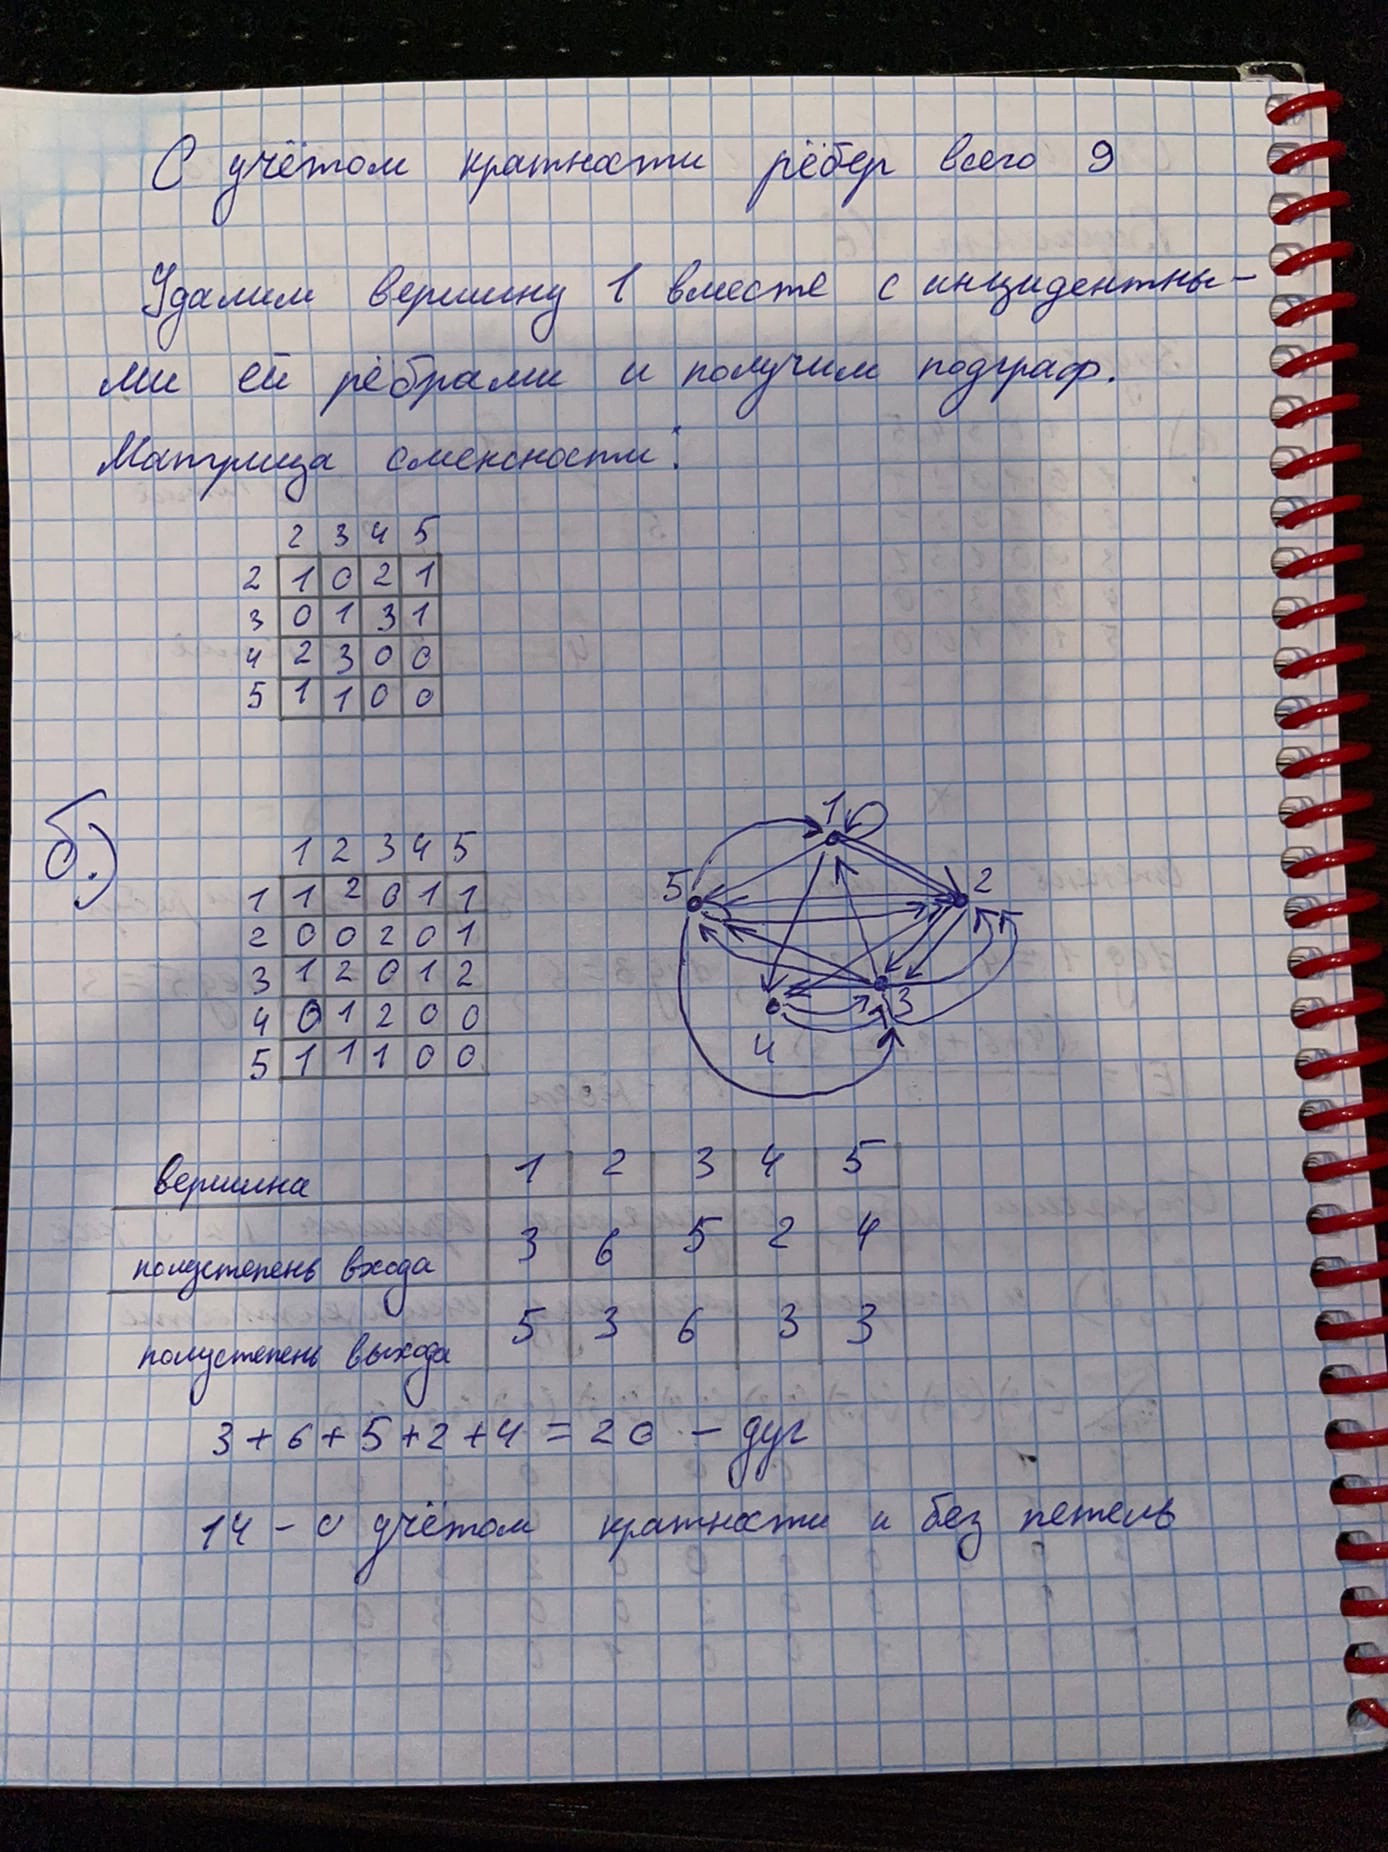 С учётом кратности рёбер всего 9
Удалим вершину 1 вместе с инцидентны-
ми ей рёбрами и получим подграф.
Матрица смежности:
2 3 4 5
2 1 0 2 1
3 0 1 3 1
4 2 3 0 0
5 1 1 0 0
б.)
1 2 3 4 5
1 1 2 0 1 1
2 0 0 2 0 1
3 1 2 0 1 2
4 0 1 2 0 0
5 1 1 1 0 0
1
2
5
3
4
вершина 1 2 3 4 5
полустепень входа 3 6 5 2 4
полустепень выхода 5 3 6 3 3
3 + 6 + 5 + 2 + 4 = 20 - дуг
14 - с учётом кратности и без петель